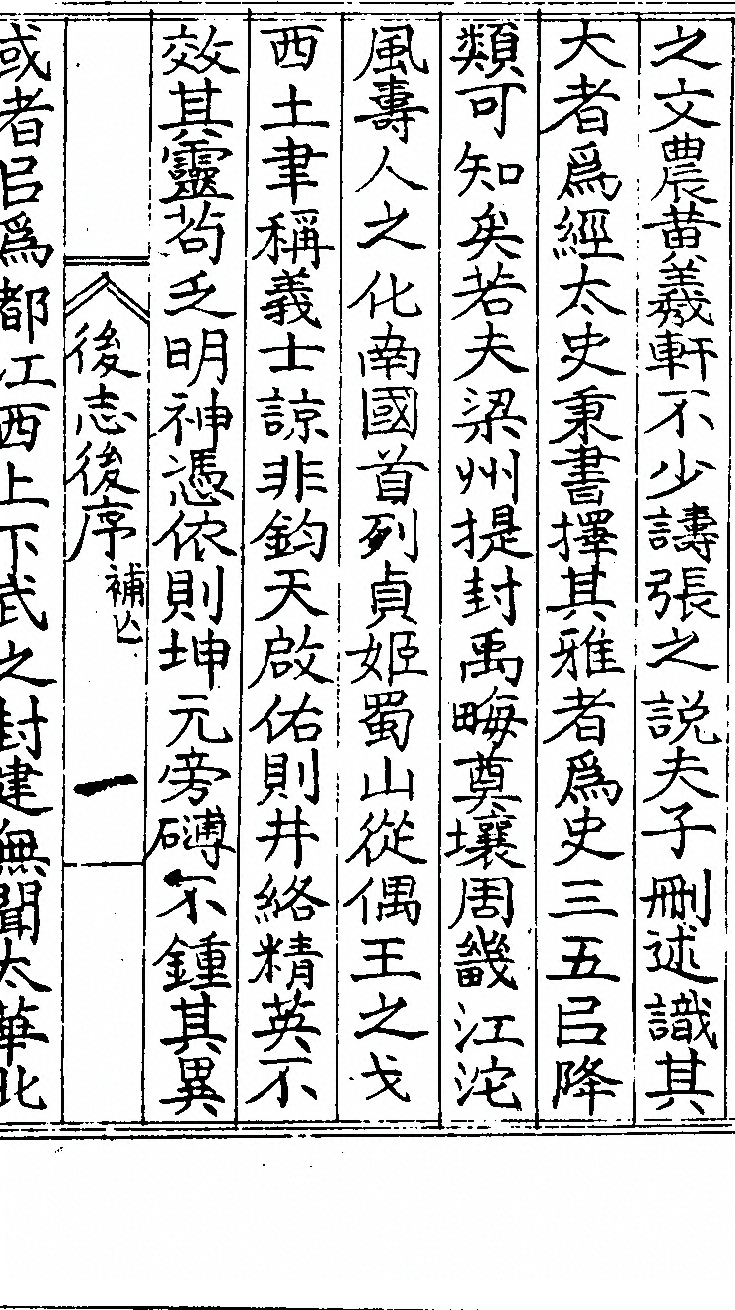 之文農黄羲軒不少譸張之説夫子刪述識其
大者爲經太史秉書擇其雅者爲史三五㠯降
類可知矣若夫梁州提封禹畮奠壤周畿江沱
風夀人之化南國首列貞姬蜀山從偶王之戈
西土聿稱義士諒非鈞天啟佑則井絡精英不
效其靈苟乏明神憑依則坤元旁礴不鍾其異
後志後序
一
或者㠯爲都江西上下武之封建無聞太華北